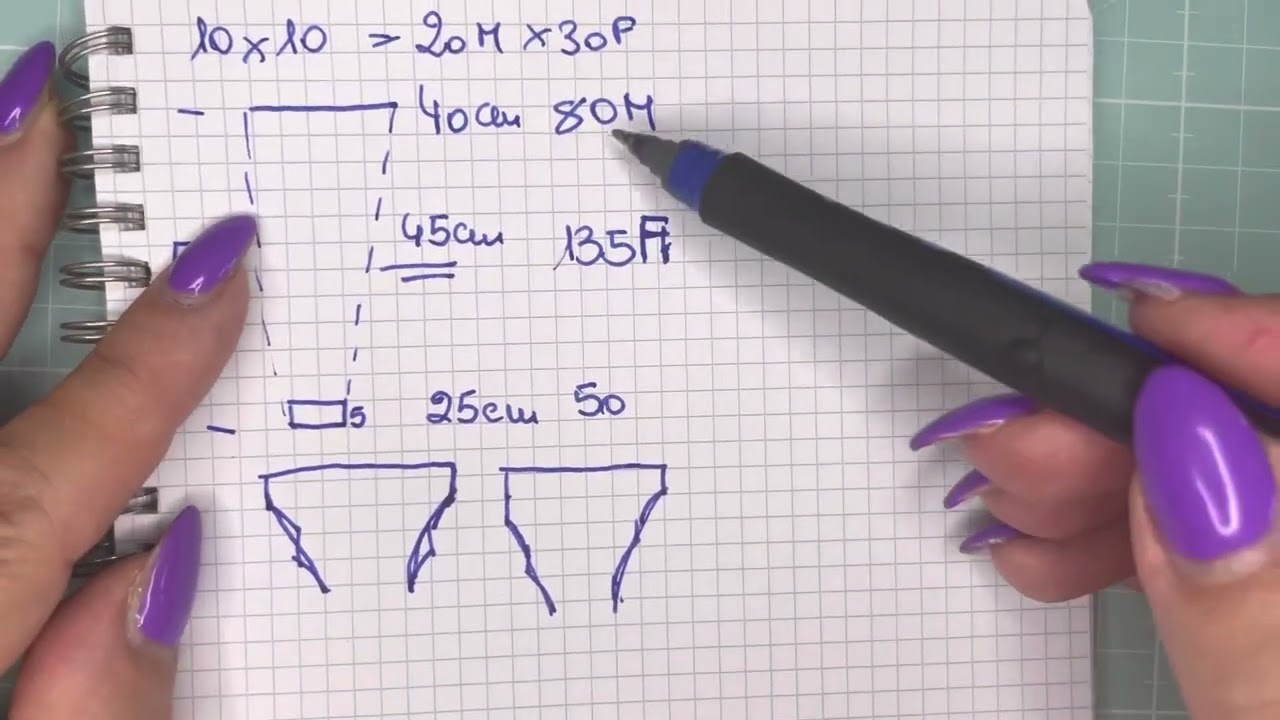 10 x 10 = 20M x 30R
40cm 80M
45cm 135R
5 25cm 50